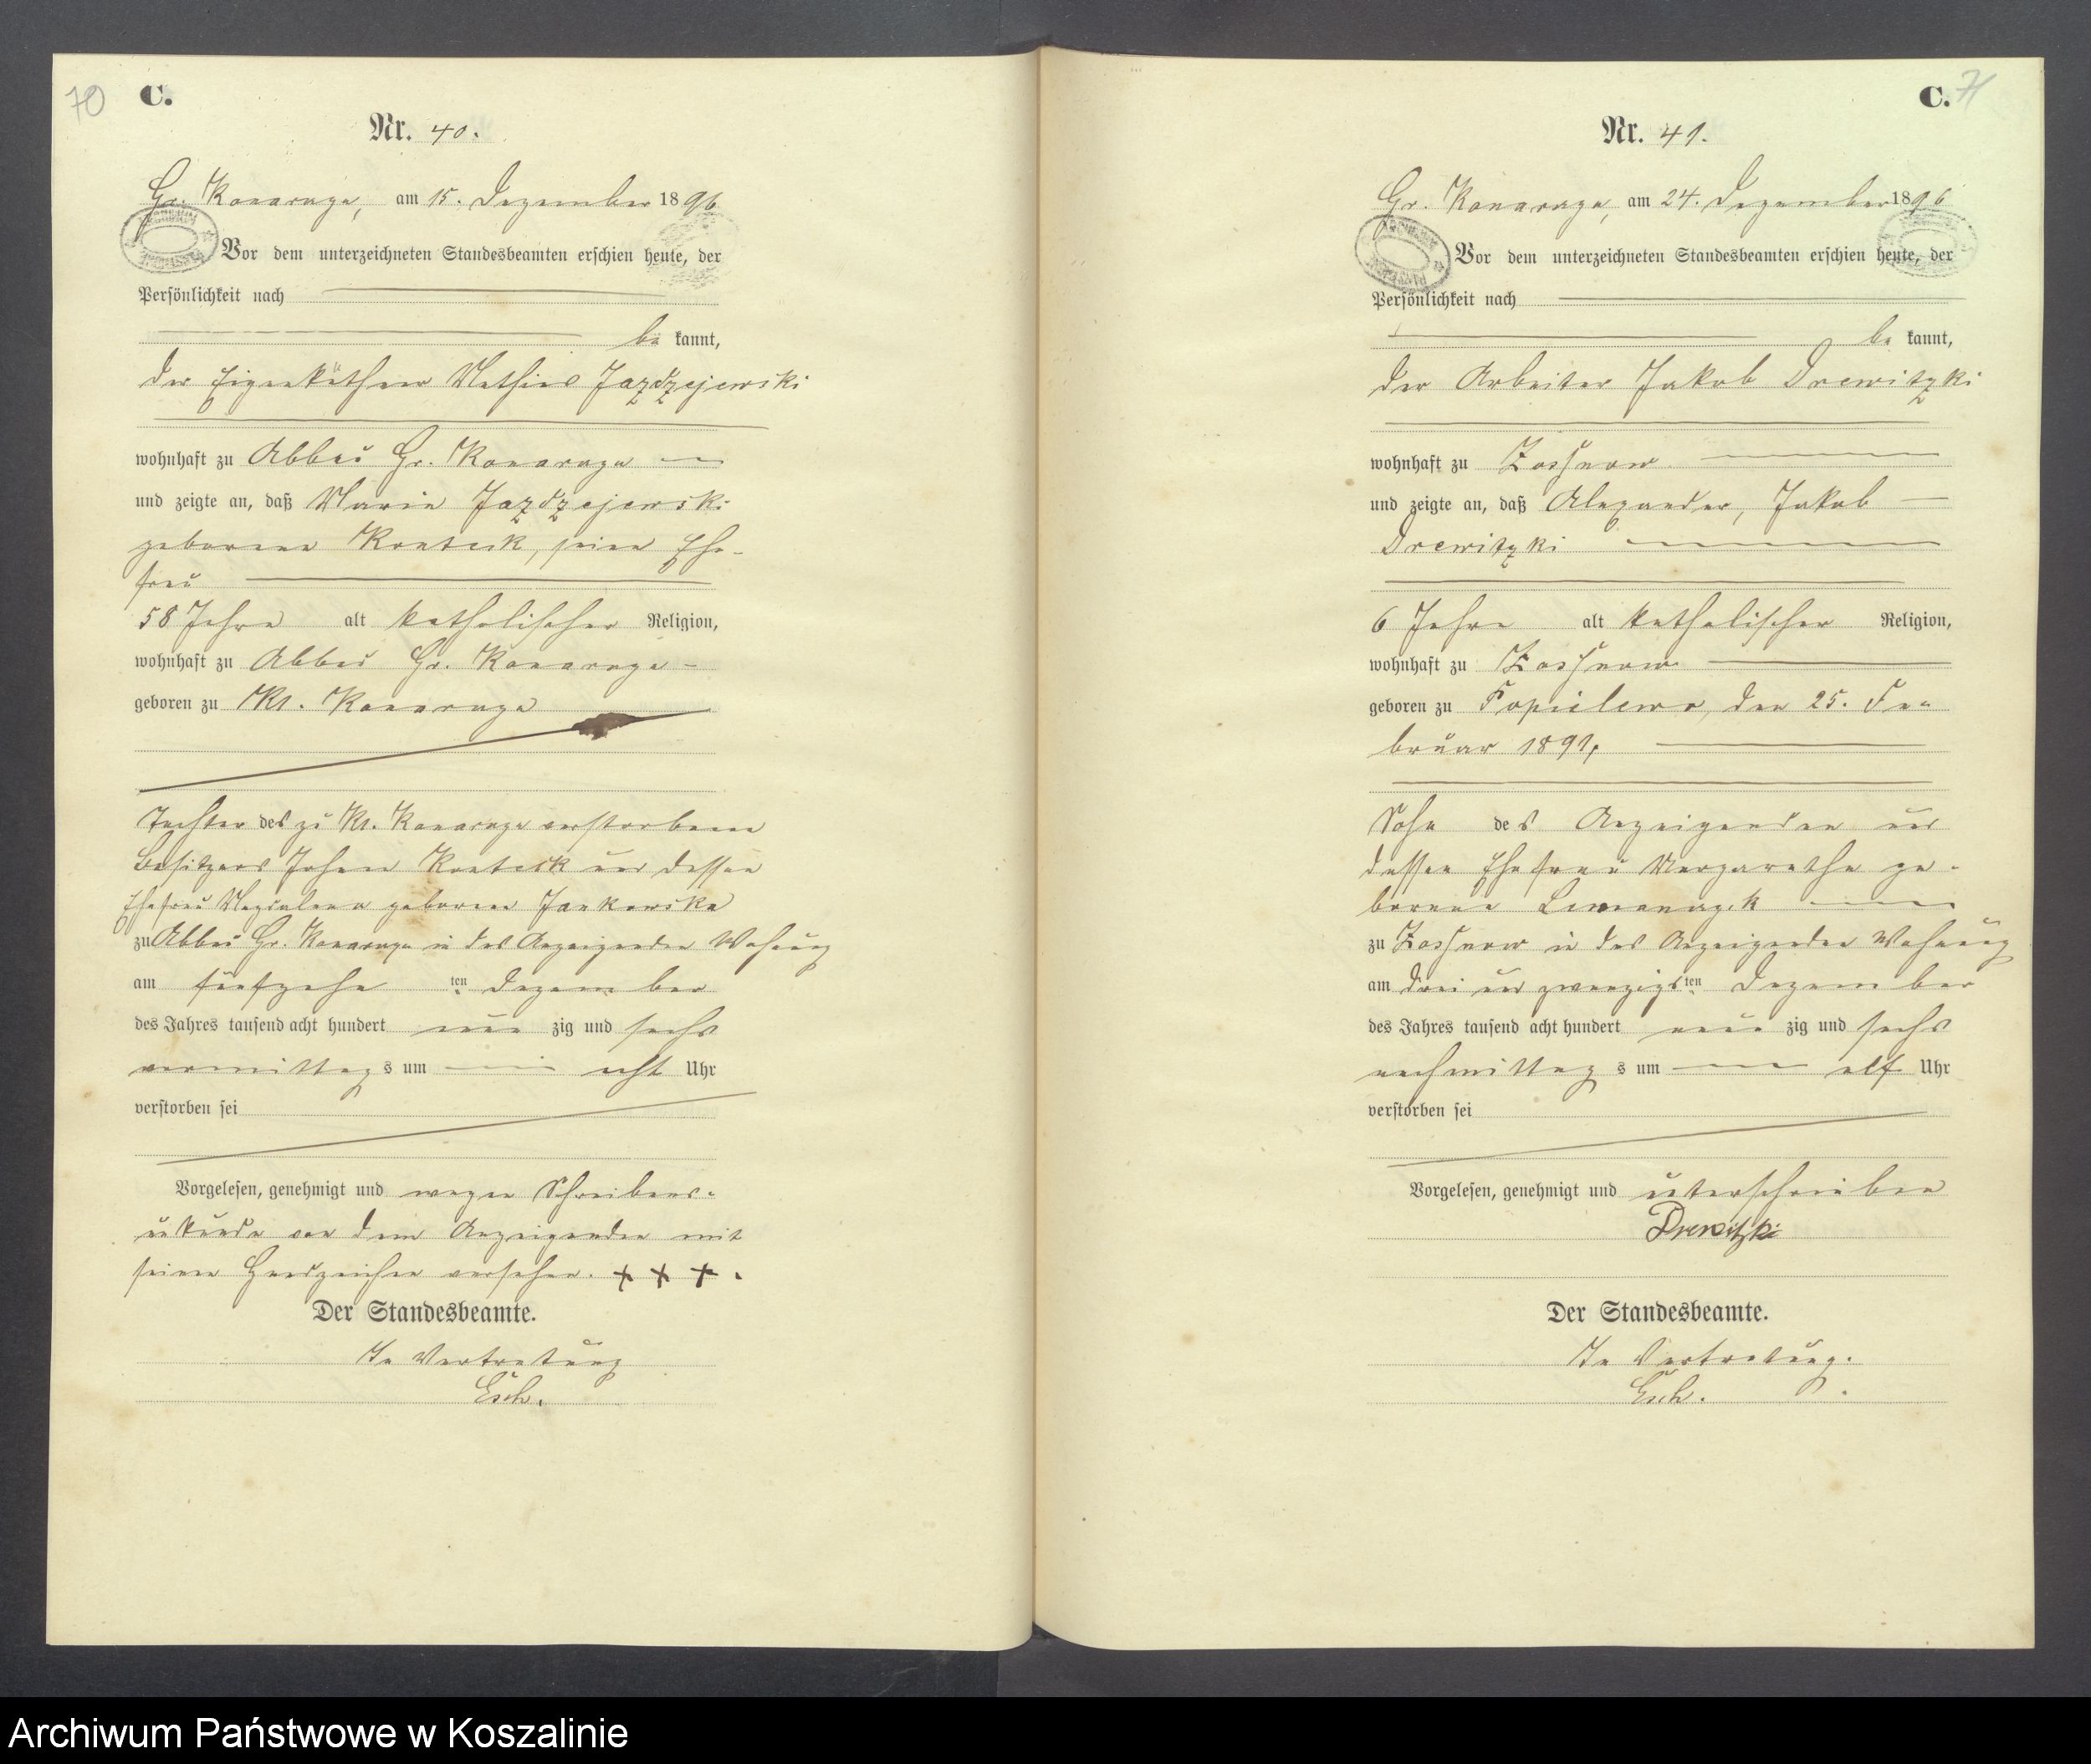 70 C.
Nr. 40.
Gr. Konarczyn, am 15. Dezember 1896
Vor dem unterzeichneten Standesbeamten erschien heute, der
Persönlichkeit nach
be kannt,
der Eigenkäthner Mathias Jazdzejewski
wohnhaft zu Abbau Gr. Konarczyn
und zeigte an, daß Maria Jazdzejewski
geborene, seine Ehe-
frau
58 Jahre alt katholischer Religion,
wohnhaft zu Abbau Gr. Konarczyn
geboren zu Kl. Konarczyn
Tochter des zu Kl. Konarczyn verstorbenen
Besitzers Johann und dessen
Ehefrau Magdalena geborene Jankowska
zu Abbau Gr. Konarczyn in des Anzeigenden Wohnung
am fünfzehn ten Dezember
des Jahres tausend acht hundert neun zig und sechs
vormittag s um acht Uhr
verstorben sei
Vorgelesen, genehmigt und wegen Schreibens-
unkunde von dem Anzeigenden mit
seinen Handzeichen versehen. + + +.
Der Standesbeamte.
In Vertretung
Esch.
C. 71
Nr. 41.
Gr. Konarczyn, am 24. Dezember 1896
Vor dem unterzeichneten Standesbeamten erschien heute, der
Persönlichkeit nach
be kannt,
der Arbeiter Jakob Drewitzki
wohnhaft zu Zossnow
und zeigte an, daß Alexander, Jakob
Drewitzki
6 Jahre alt katholischer Religion,
wohnhaft zu Zossnow
geboren zu Popielewo, den 25. Fe-
bruar 1891,
Sohn des Anzeigenden und
dessen Ehefrau Margarethe ge-
borene
zu Zossnow in des Anzeigenden Wohnung
am drei und zwanzigs ten Dezember
des Jahres tausend acht hundert neun zig und sechs
nachmittag s um elf Uhr
verstorben sei
Vorgelesen, genehmigt und unterschrieben
Drewitzki
Der Standesbeamte.
In Vertretung.
Esch.
Archiwum Państwowe w Koszalinie